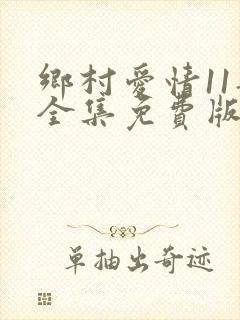 鄉村愛情11
全集免費版
单抽出奇迹